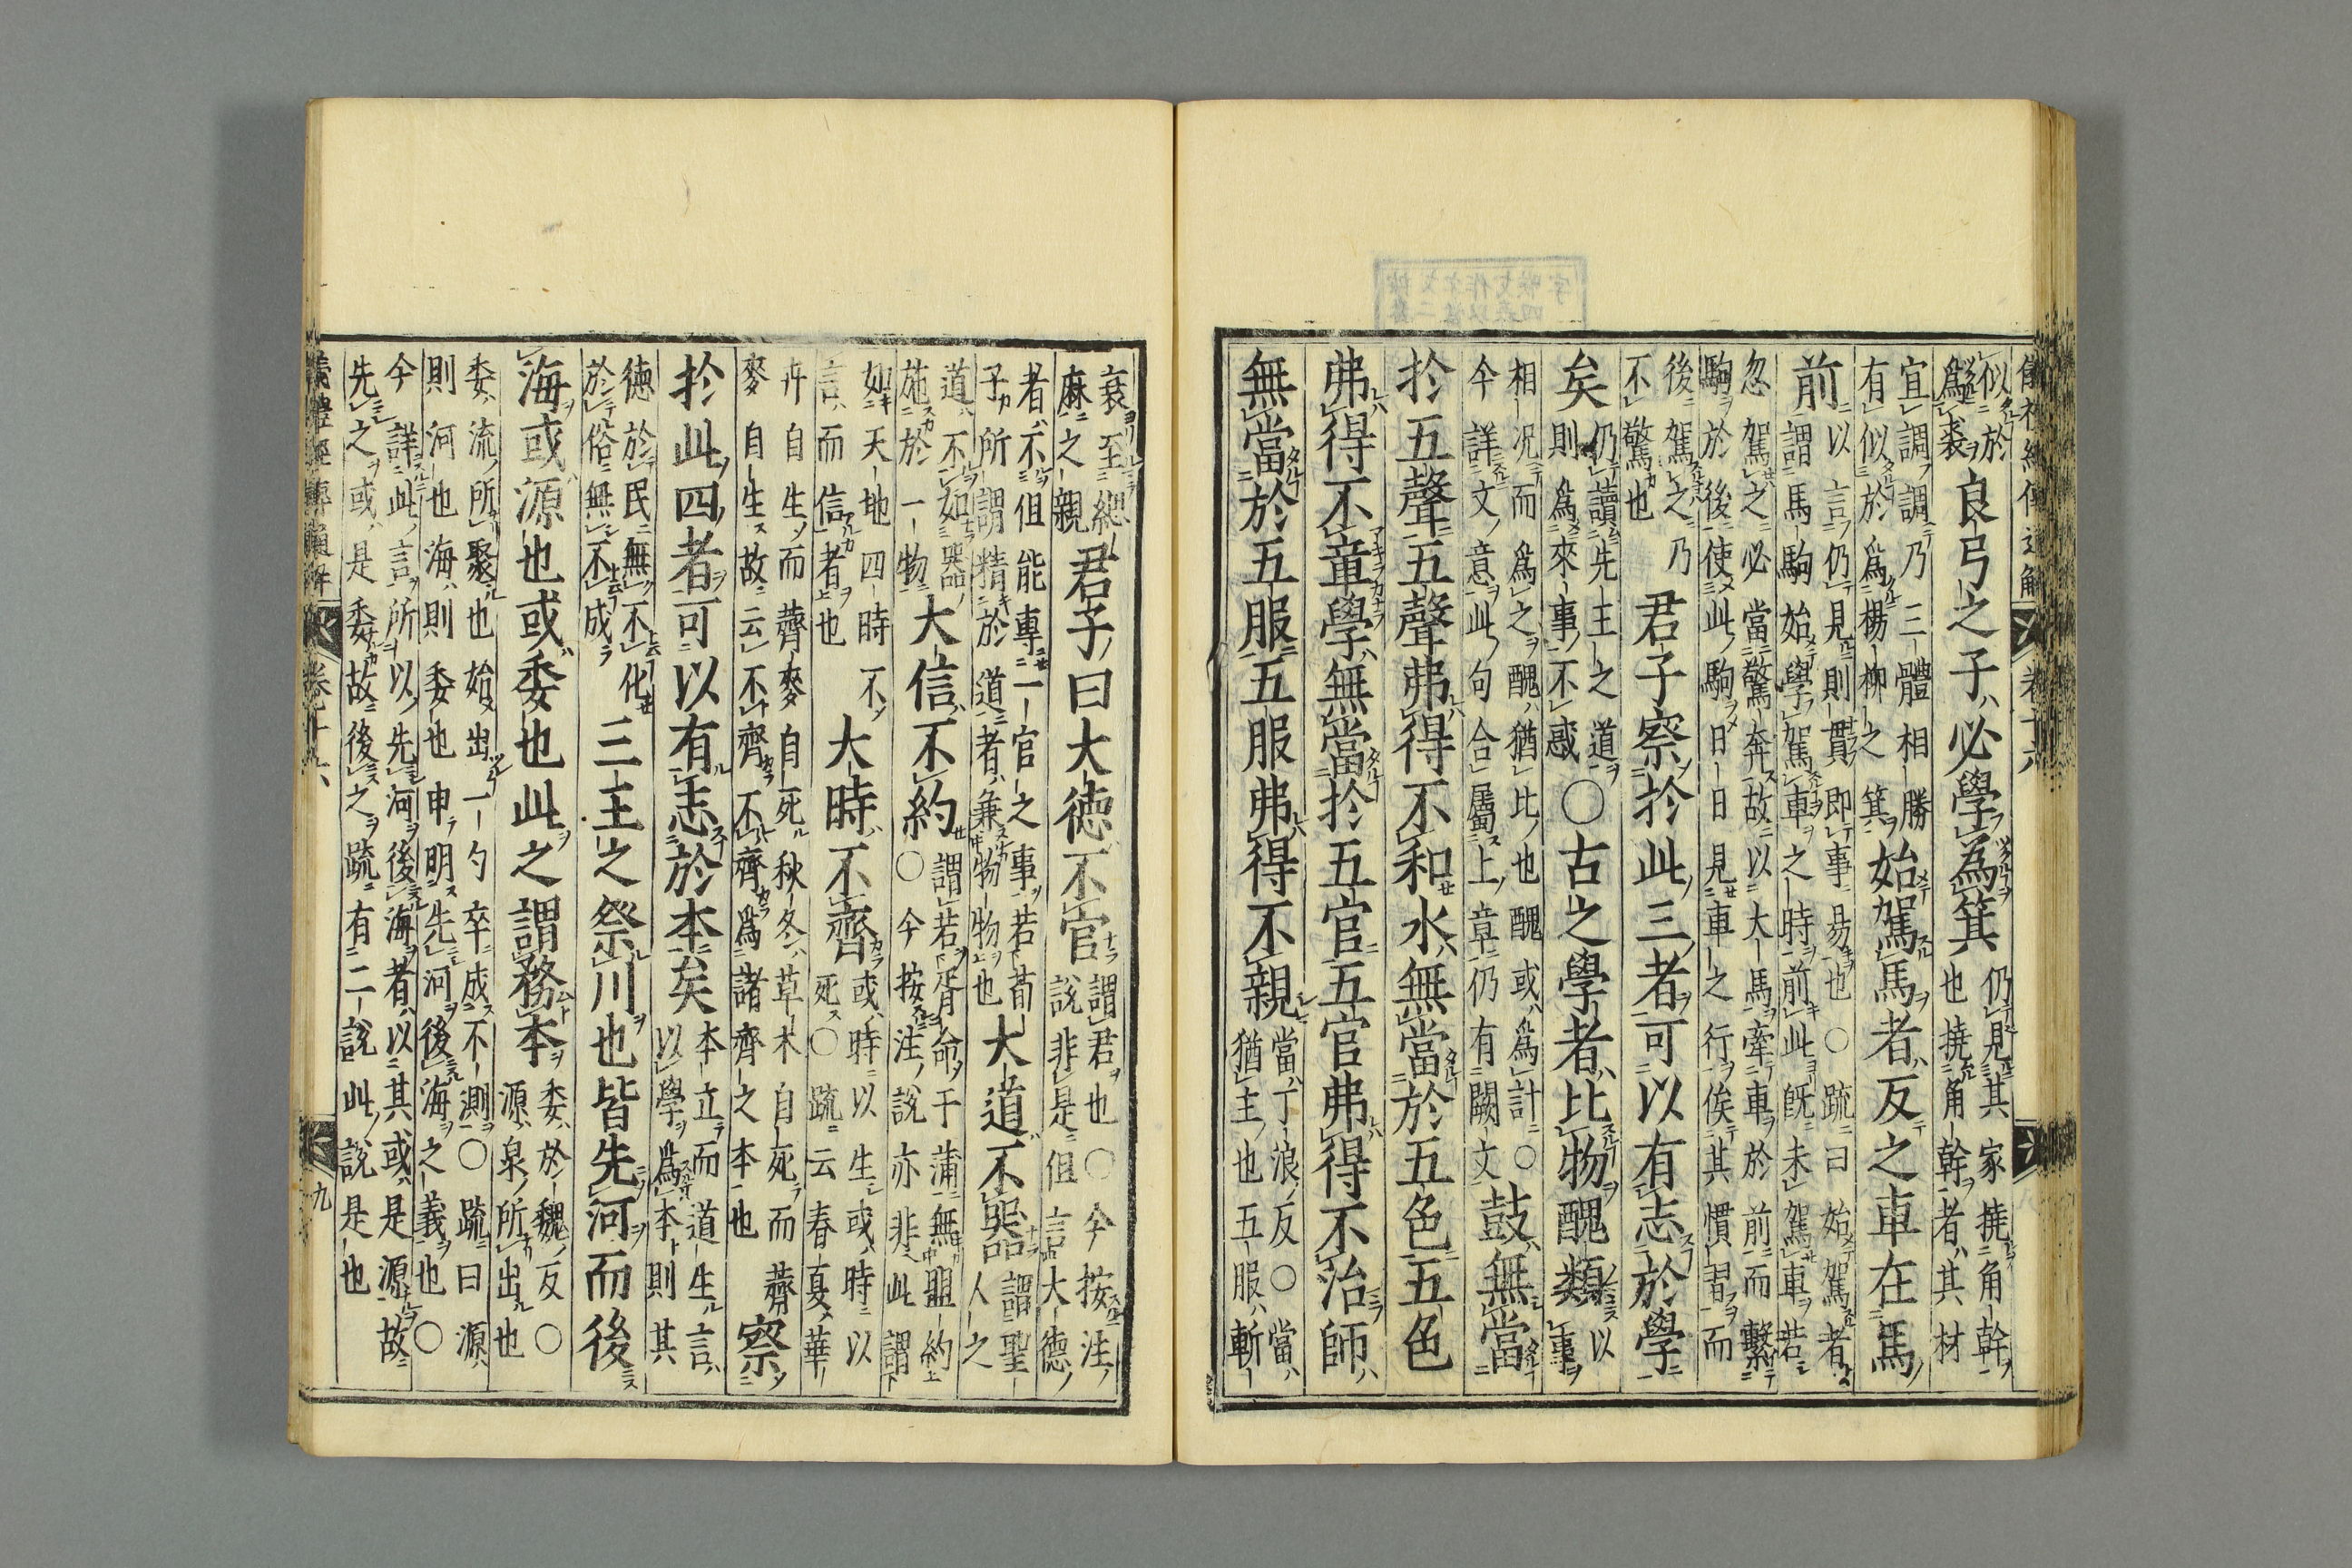 儀禮經傳通解 卷十六
似於
爲裘
良弓之子必學為箕
仍見其家撓角幹
也撓角幹者其材
宜調調乃三體相勝
有似於爲楊柳之箕
始駕馬者反之車在馬
前
以言仍見則貫即事易也○疏曰始駕者
謂馬駒始學駕車之時前此旣未駕車若
忽駕之必當驚奔故以大馬牽車於前而繫
駒於後使此駒日日見車之行俟其慣習而
後駕之乃
不驚也
君子察於此三者可以有志於學
矣
仍讀先王之道
則爲來事不惑
○古之學者比物醜類
以
事
相况而爲之醜猶比也醜或爲計○
今詳文意此句合屬上章仍有闕文
鼓無當
於五聲五聲弗得不和水無當於五色五色
弗得不章學無當於五官五官弗得不治師
無當於五服五服弗得不親
當丁浪反○當
猶主也五服斬
衰至緦
麻之親
君子曰大德不官
謂君也○今按注
說非是但言大德
者不但能專一官之事若荀
子所謂精於道者兼物物也
大道不器
謂聖
人之
道不如器
施於一物
大信不約
謂若胥命于蒲無盟約
○今按注說亦非此謂
如天地四時不
言而信者也
大時不齊
或時以生或時以
死○疏云春夏華
卉自生而薺麥自死秋冬草木自死而薺
麥自生故云不齊不齊爲諸齊之本也
察
於此四者可以有志於本矣
本立而道生言
以學爲本則其
德於民無不化
於俗無不成
三王之祭川也皆先河而後
海或源也或委也此之謂務本
委於魏反○
源泉所出也
委流所聚也始出一勺卒成不測○疏曰源
則河也海則委也申明先河後海之義也○
今詳此言所以先河後海者以其或是源故
先之或是委故後之疏有二說此說是也
儀禮經傳通解 卷十六 九